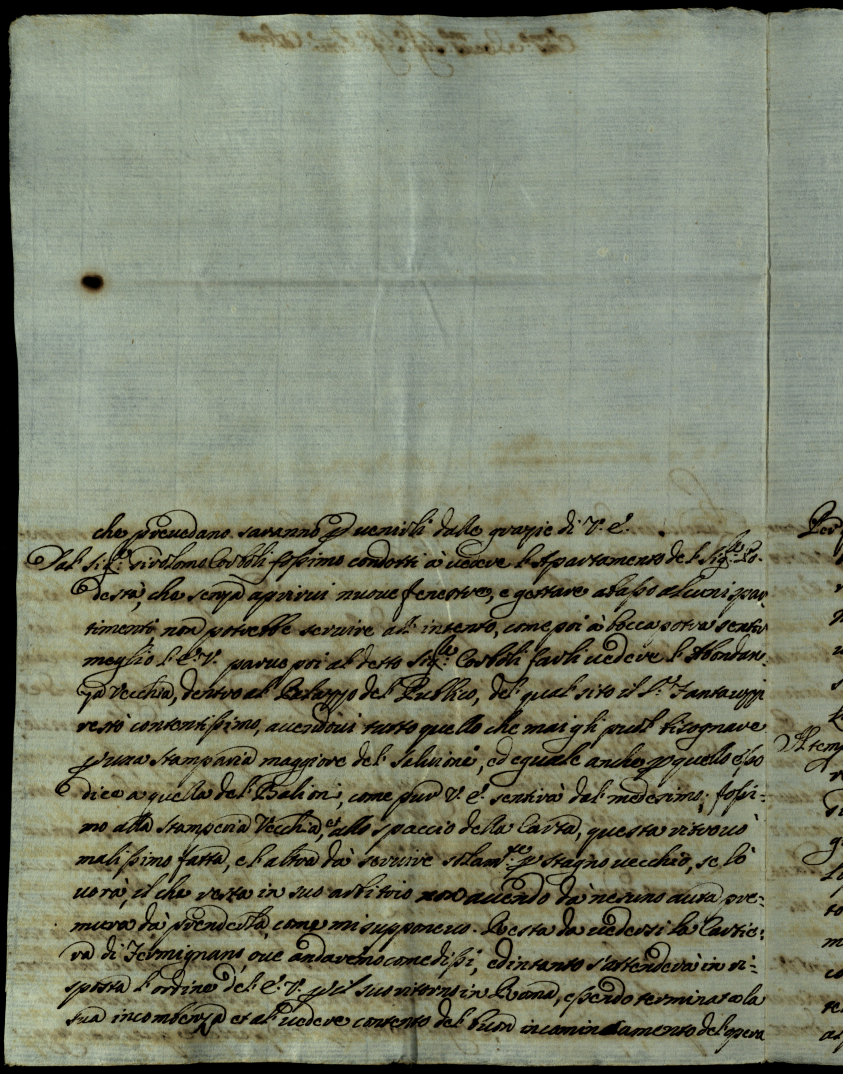 che prevedano saranno p venirli dalle grazie di V. E.
Dal Sig.r Girolamo Cortoli fossimo condotti à vedere l'Apartamento del Sig.re Po-
destà, che senza aprirui nuove fenestre, e gettare abasso alcuni spar
timenti non potrebbe servire all'intento, come poi à bocca potrà sentir
meglio l'E. V. parue poi al detto Sig.re Cortoli farli vedere l'Abondan-
za Vecchia, dentro al Palazzo del Publico, del qual sito il S.r Fantauzzi
restò contentissimo, auendoui tutto quello che mai gli può bisognare
p una stamparia maggiore del Saluioni, ed eguale anche p quello esso
dice a quella del Balioni, come pur V. E. sentirà dal medesimo; fossi-
mo alla stamperia Vecchia, et allo spaccio della Carta, questa ritrouò
malissimo fatta, e l'altra dà seruire solam.te p stagno uecchio, se lo
uorà, il che resta in suo arbitrio non auendo dà nesuno auta pre-
mura dà prenderla, come mi supponeuo. Resta da uedersi la Cartie-
ra di Fermignano oue andaremo come dissi, ed intanto s'attenderà in ri-
sposta l'ordine del E. V. p il suo ritorno in Roma, essendo terminata la
sua incombenza et al uedere contento del buon incominciamento del opera
Per
A temp